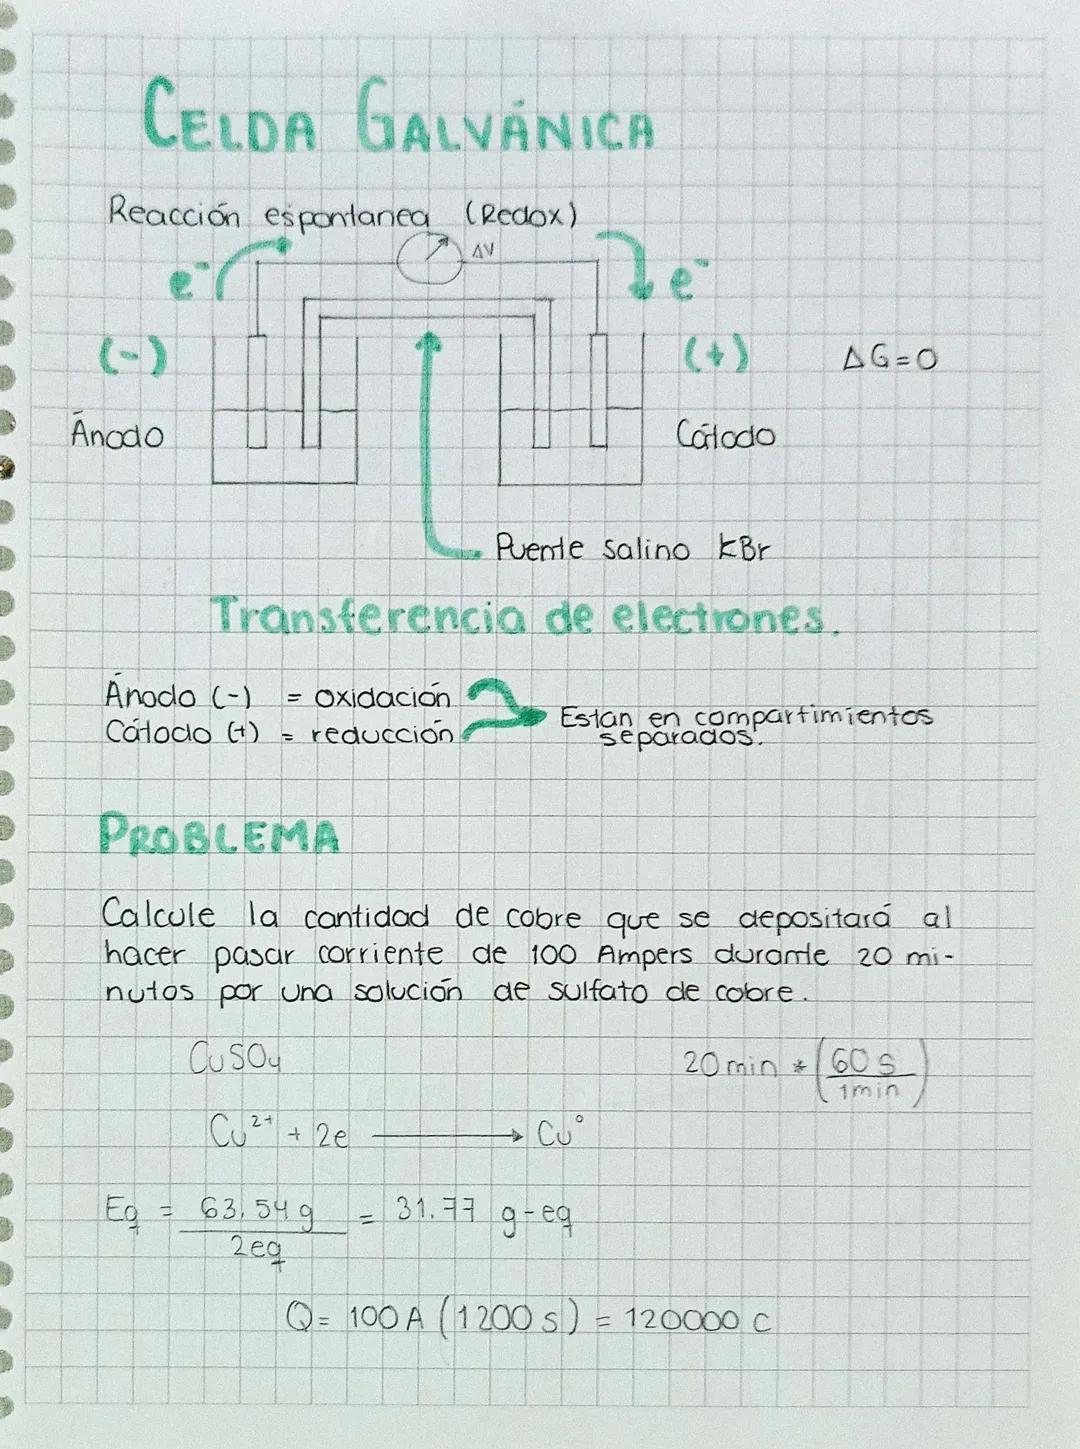 CELDA GALVÁNICA
Reacción espontanea (Redox)
ΔV
e⁻
e⁻
(-)
(+)
ΔG=0
Ánodo
Cátodo
Puente salino KBr
Transferencia de electrones.
Ánodo (-) = oxidación
Cátodo (+) = reducción
Estan en compartimientos
separados.
PROBLEMA
Calcule la cantidad de cobre que se depositará al
hacer pasar corriente de 100 Ampers durante 20 mi-
nutos por una solución de sulfato de cobre.
CuSO₄
20 min * (60 s / 1 min)
Cu²⁺ + 2e ⟶ Cu°
Eq = 63.54 g / 2eq = 31.77 g-eq
Q = 100 A (1200 s) = 120000 C